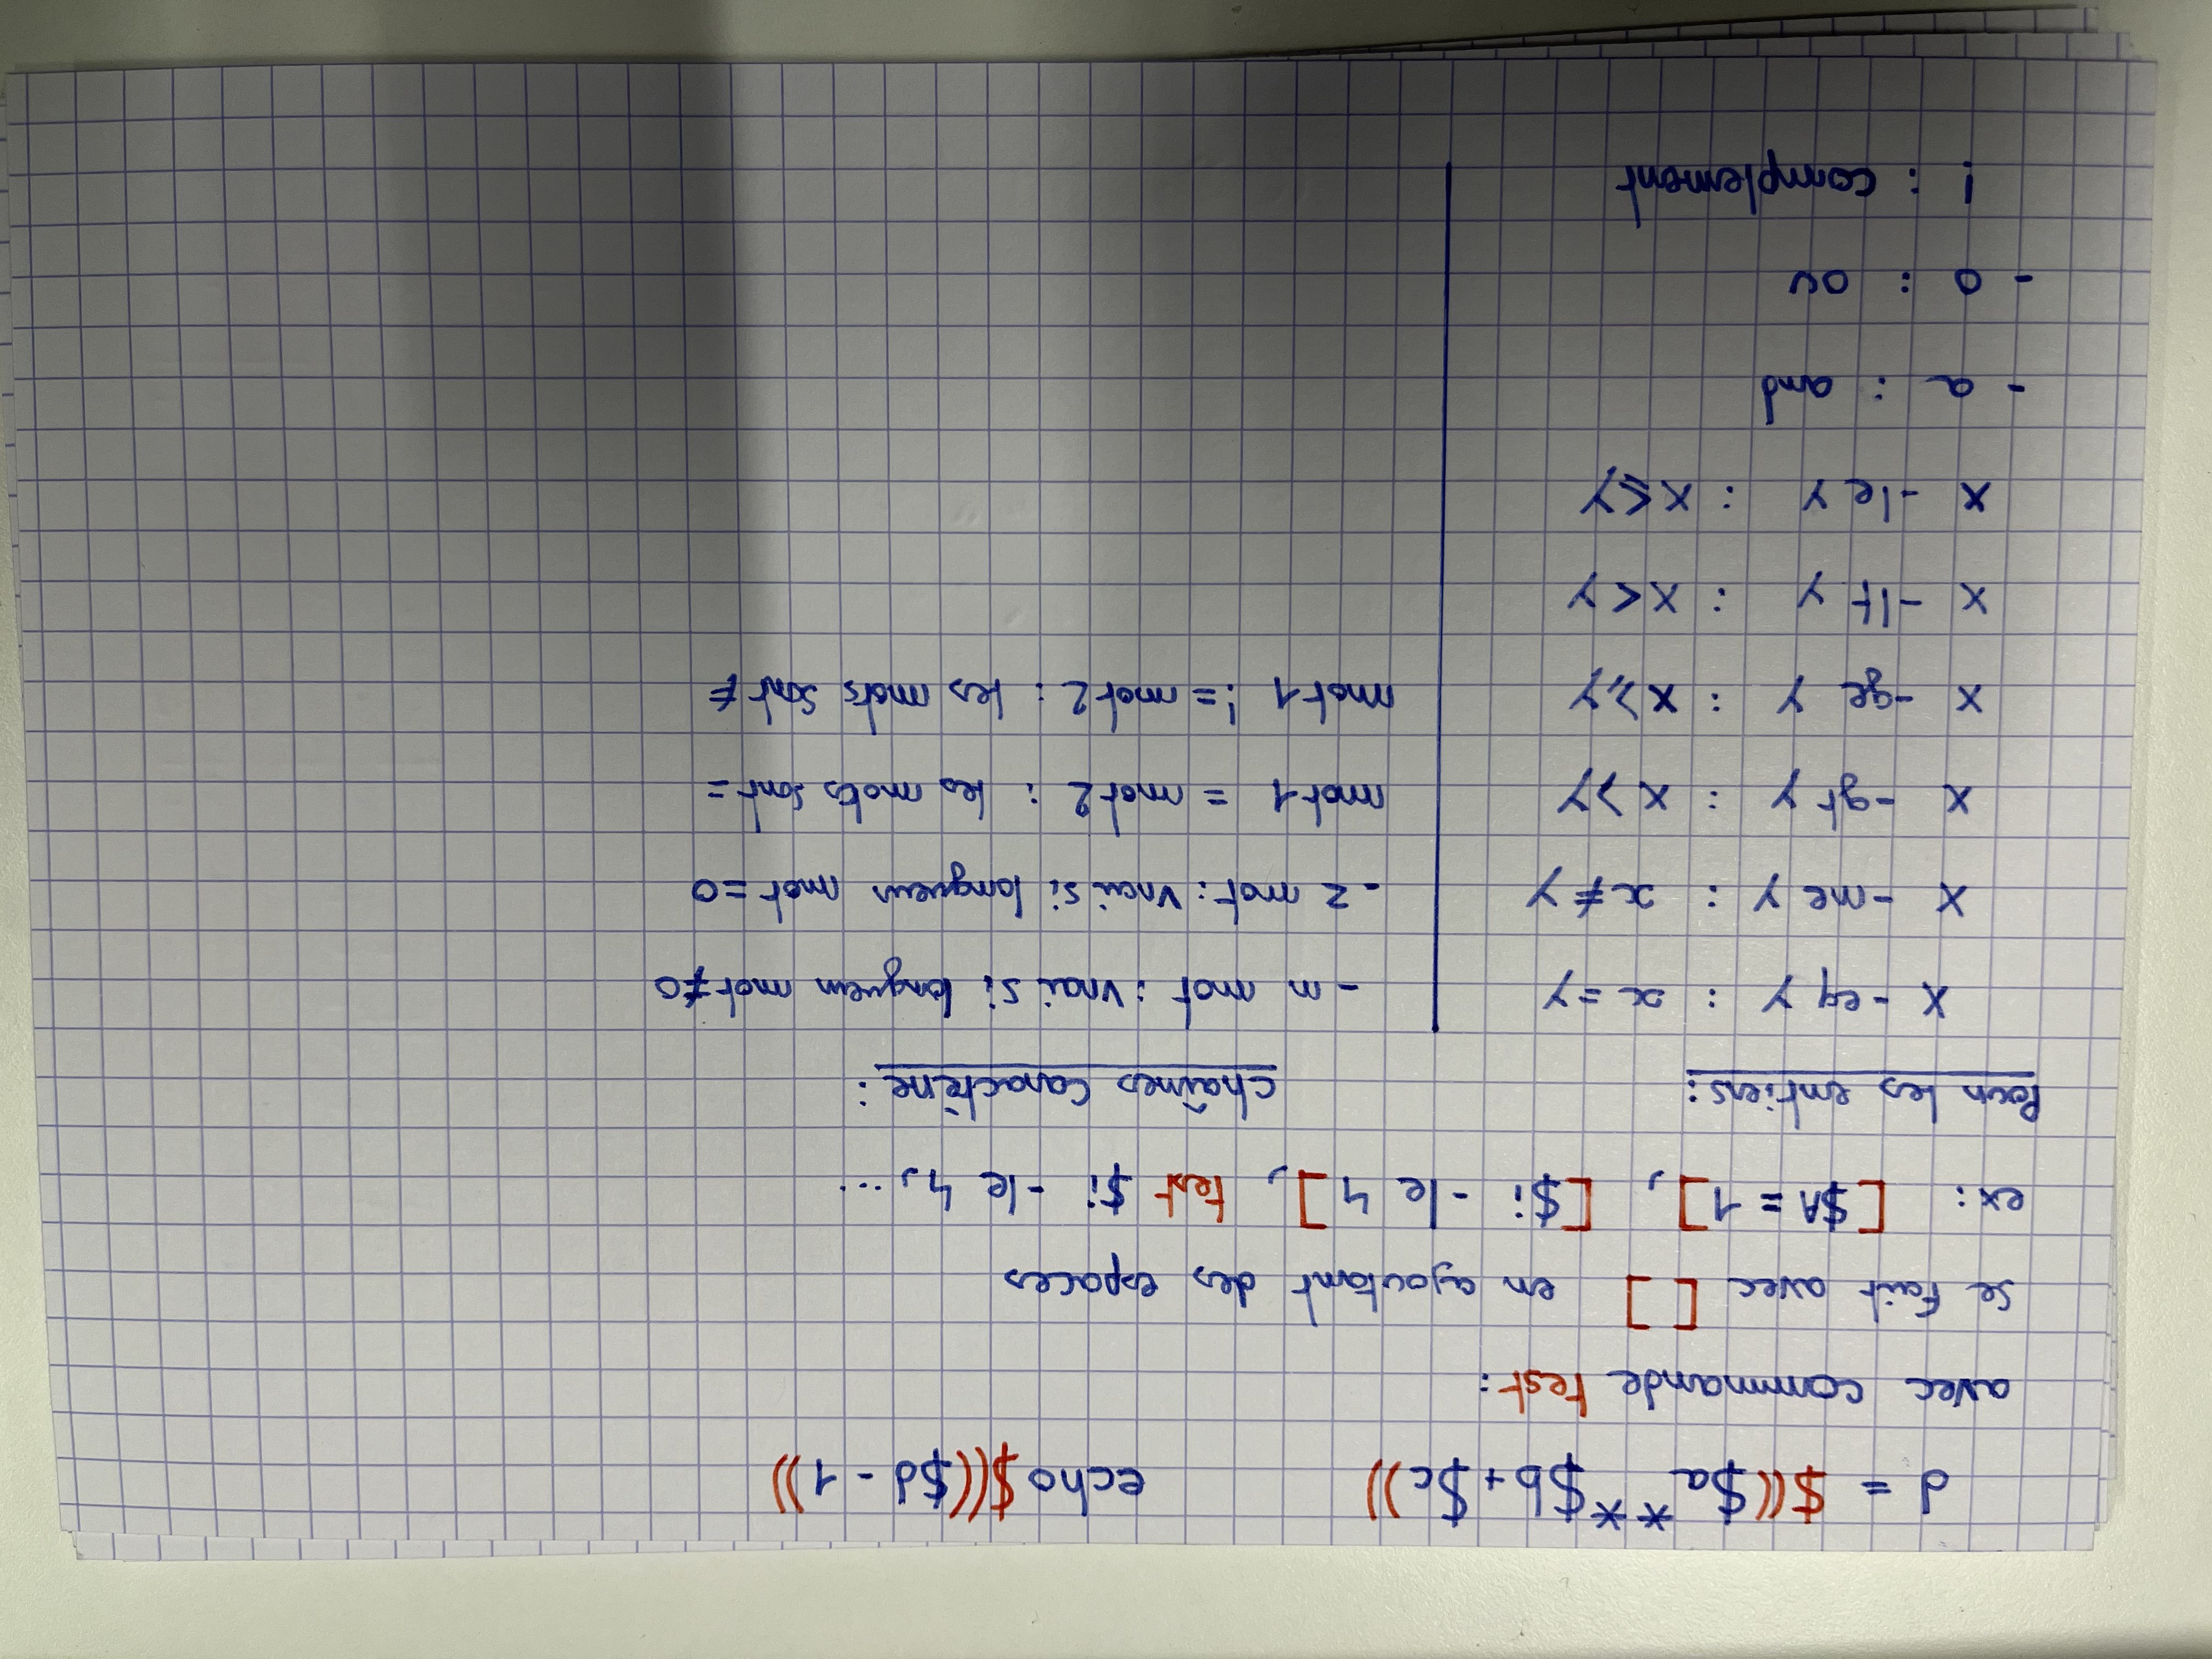 d = $(($a ** $b + $c)) echo $(($d - 1))
avec commande test :
se fait avec [ ] en ajoutant des espaces
ex : [$A = 1], [$i -le 4], test $i -le 4, ...
Pour les entiers :
x -eq y : x = y
x -ne y : x ≠ y
x -gt y : x > y
x -ge y : x ⩾ y
x -lt y : x < y
x -le y : x ⩽ y
- a : and
- o : ou
! : complement
chaînes caractère :
- n mot : vrai si longueur mot ≠ 0
- z mot : vrai si longueur mot = 0
mot 1 = mot 2 : les mots sont =
mot 1 != mot 2 : les mots sont ≠